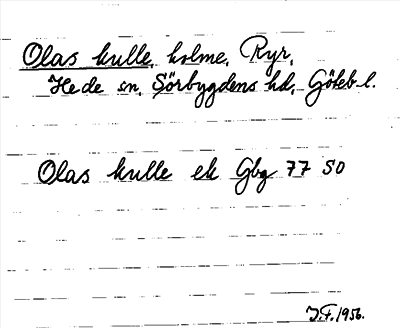 Olas kulle, holme, Ryr,
Hede sn, Sörbygdens hd, Göteb.l.
Olas kulle ek Gbg 77 SO
J.F. 1956.